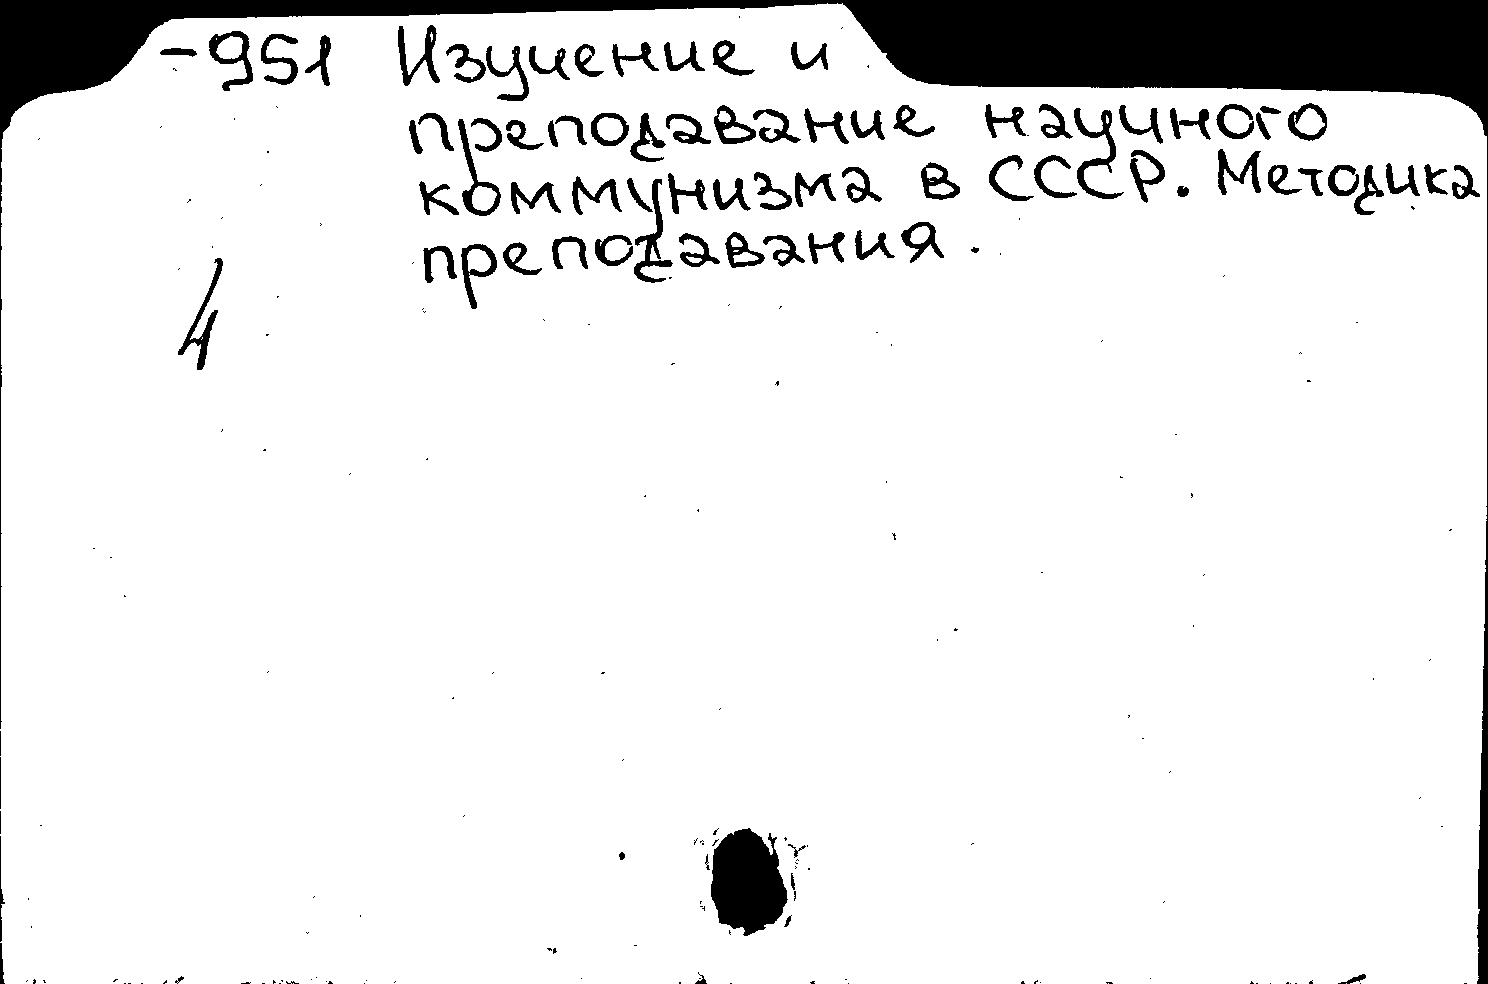 -951 Изучение и
преподавание научного
коммунизма в СССР. Методика
преподавания.
4